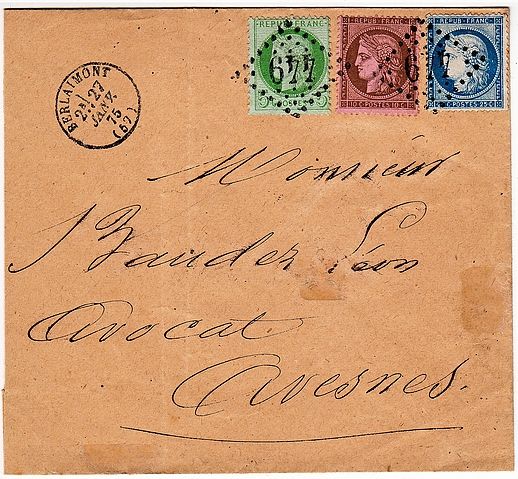 REPUB·FRANC·
REPUB·FRANC·
REPUB·FRANC·
5 POSTES
10 C·POSTES 10 C·
25 C·POSTES·25 C·
449
449
BERLAIMONT
2E 27
JANV.
75
(57)
Monsieur
Léon
Avocat
Avesnes.